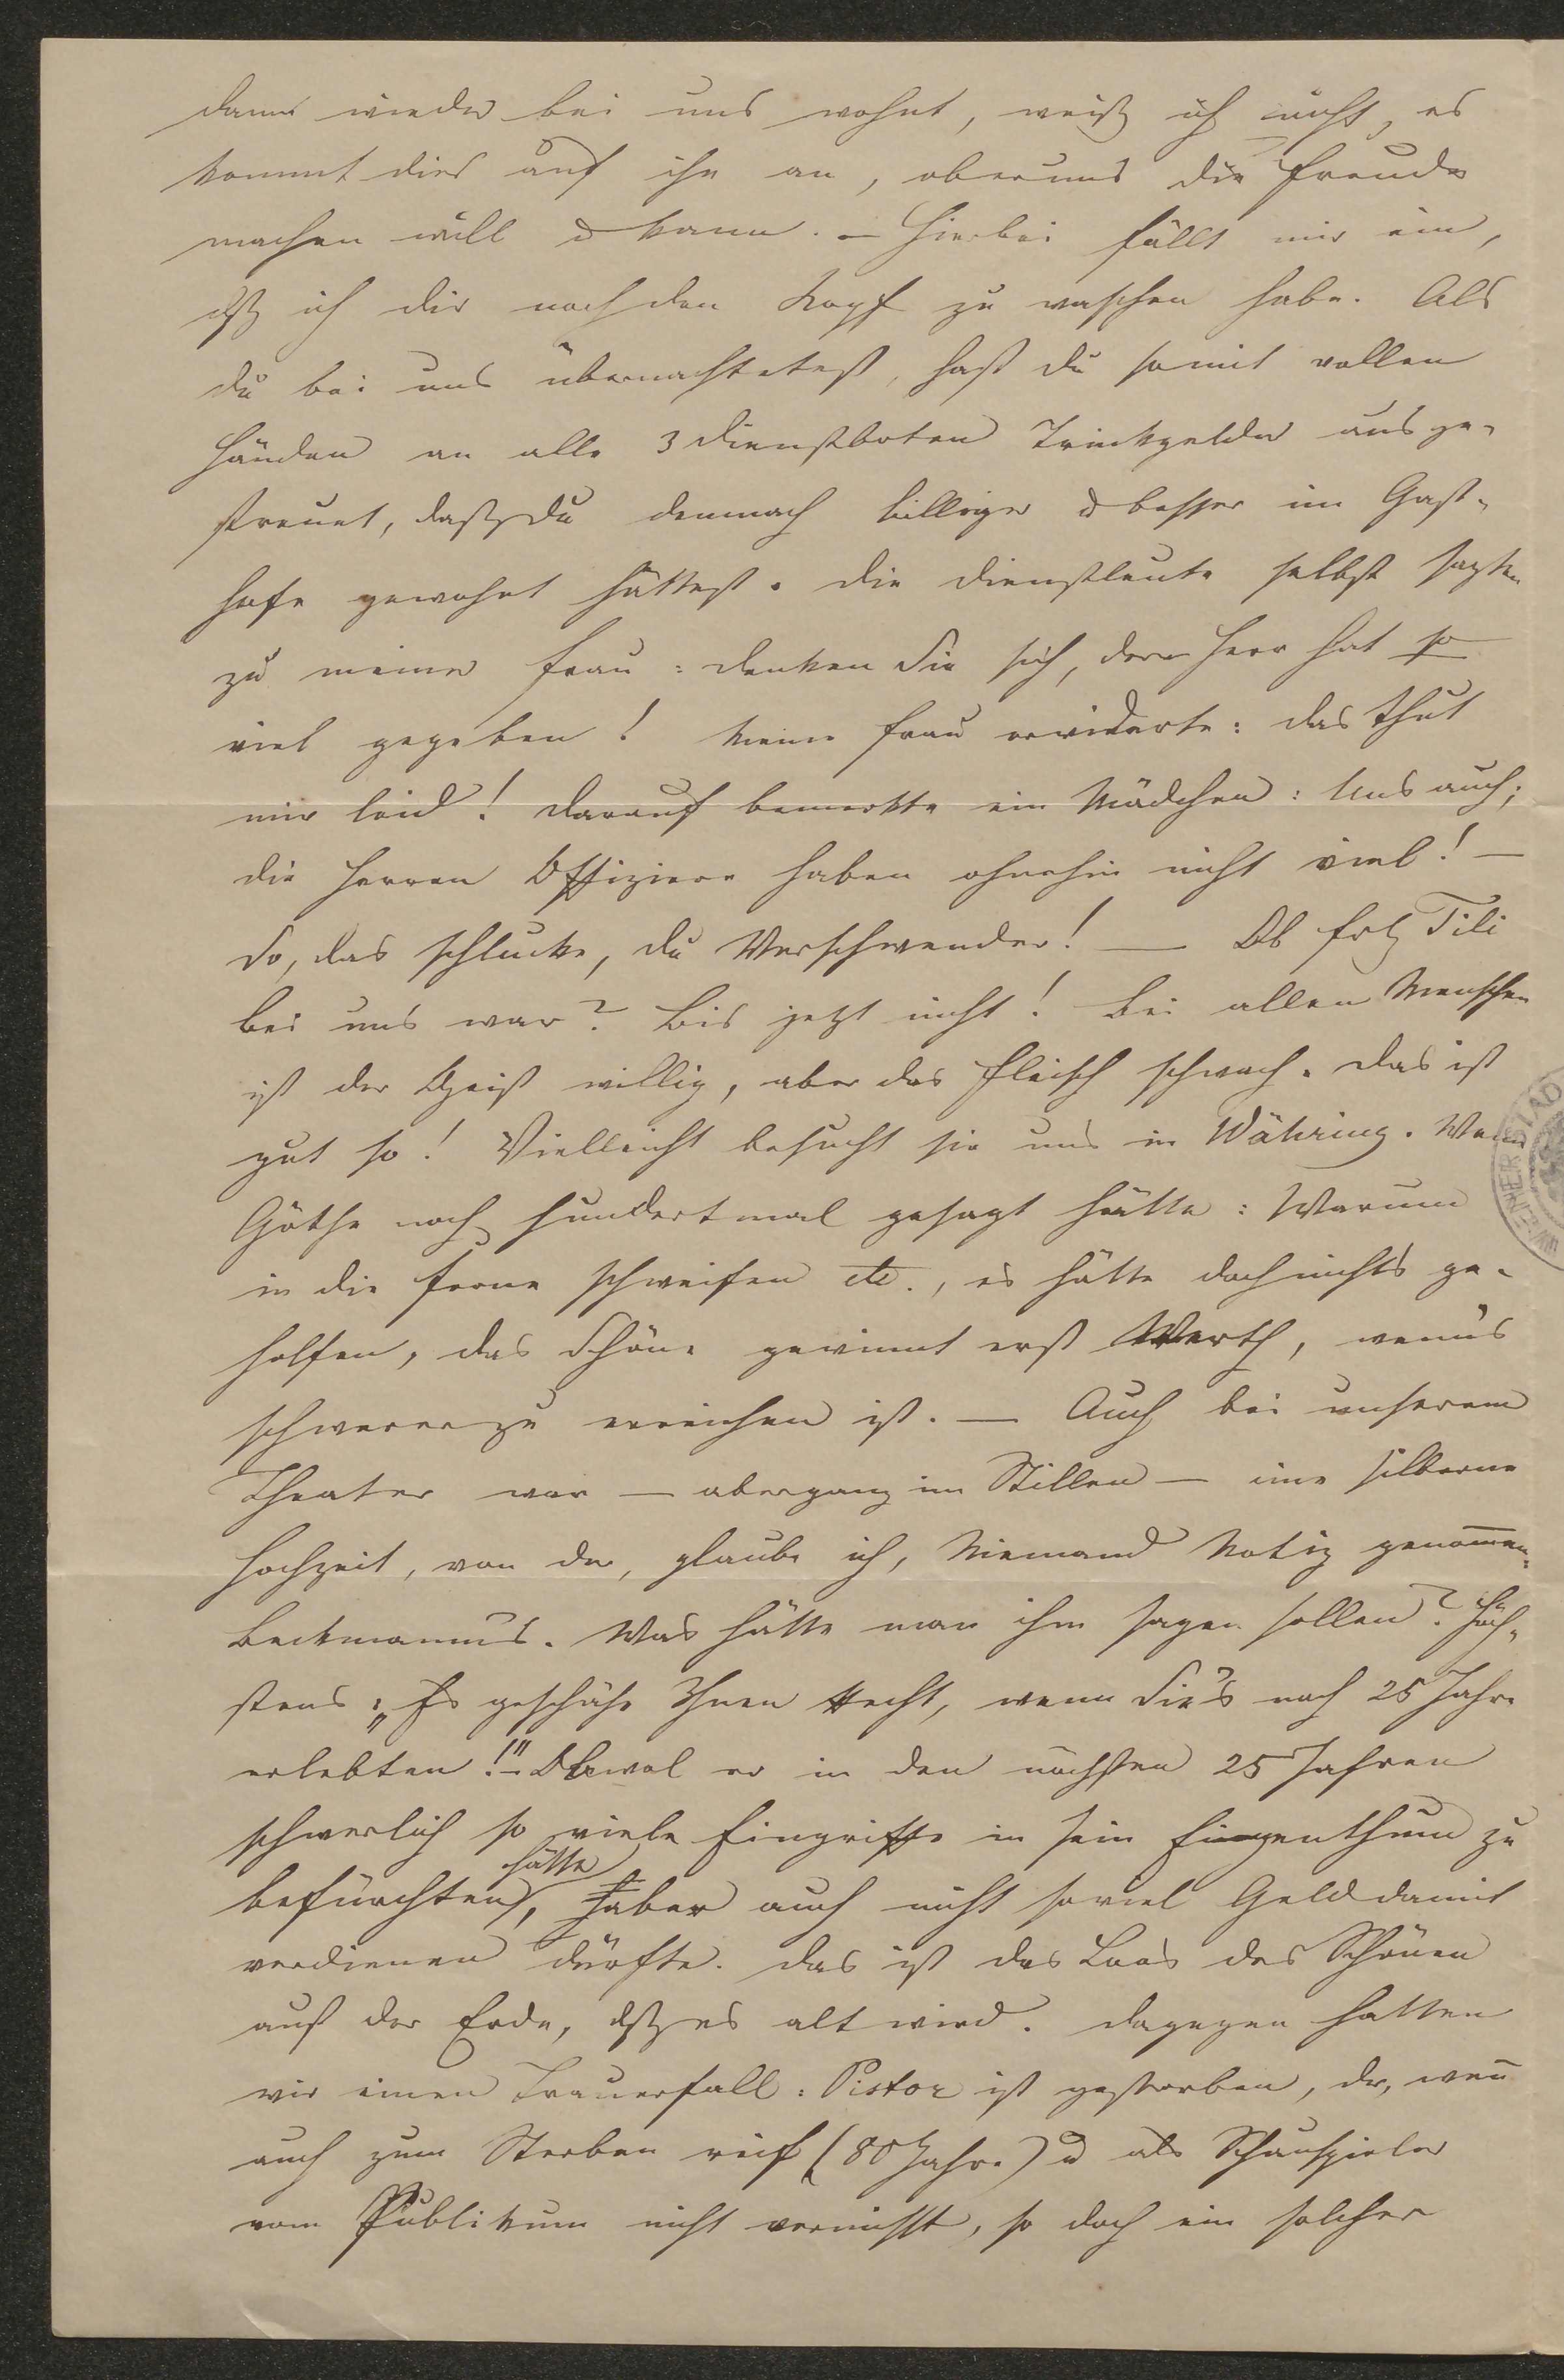 dann wieder bei uns wohnt, weiß ich nicht, es
kommt dies auf ihn an, ob er uns die Freude
machen will & kann. – Hierbei fällt mir ein,
dß ich dir noch den Kopf zu waschen habe. Als
du bei uns übernachtetest, hast du so mit vollen
Händen an alle 3 Dienstboten Trinkgelder ausge-
streuet, daß du demnach billiger & besser im Gast-
hofe gewohnt hättest. Die Dienstleute selbst sagten
zu meiner Frau: denken Sie sich, der Herr hat so
viel gegeben! Meine Frau erwiderte: das thut
mir leid! Darauf bemerkte ein Mädchen: Uns auch;
die Herren Offiziere haben ohnehin nicht viel! –
So, das schlucke, du Verschwender! — Ob Frl. Tili
bei uns war? Bis jetzt nicht! Bei allen Menschen
ist der Geist willig, aber das Fleisch schwach. Das ist
gut so! Vielleicht besucht sie uns in Währing. Wenn
Göthe noch hundertmal gesagt hätte: Warum
in die Ferne schweifen etc., es hätte doch nichts ge-
holfen, das Schöne gewinnt erst Werth, wenn's
schwerer zu erreichen ist. — Auch bei unserem
Theater war — aber ganz im Stillen — eine silberne
Hochzeit, von der, glaube ich, Niemand Notiz genommen:
Beckmann's. Was hätte man ihm sagen sollen? Höch-
stens: „Es geschähe Ihnen Recht, wenn Sie's noch 25 Jahre
erlebten!" – Obwol er in den nächsten 25 Jahren
schwerlich so viele Eingriffe in sein Eigenthum zu
hätte
befürchten, aber auch nicht soviel Geld damit
verdienen dürfte. Das ist das Loos des Schönen
auf der Erde, dß es alt wird. Dagegen hatten
wir einen Trauerfall: Pistor ist gestorben, der, wen̄
auch zum Sterben reif (80 Jahre) & als Schauspieler
vom Publikum nicht vermißt, so doch ein solcher
WIENER STAD